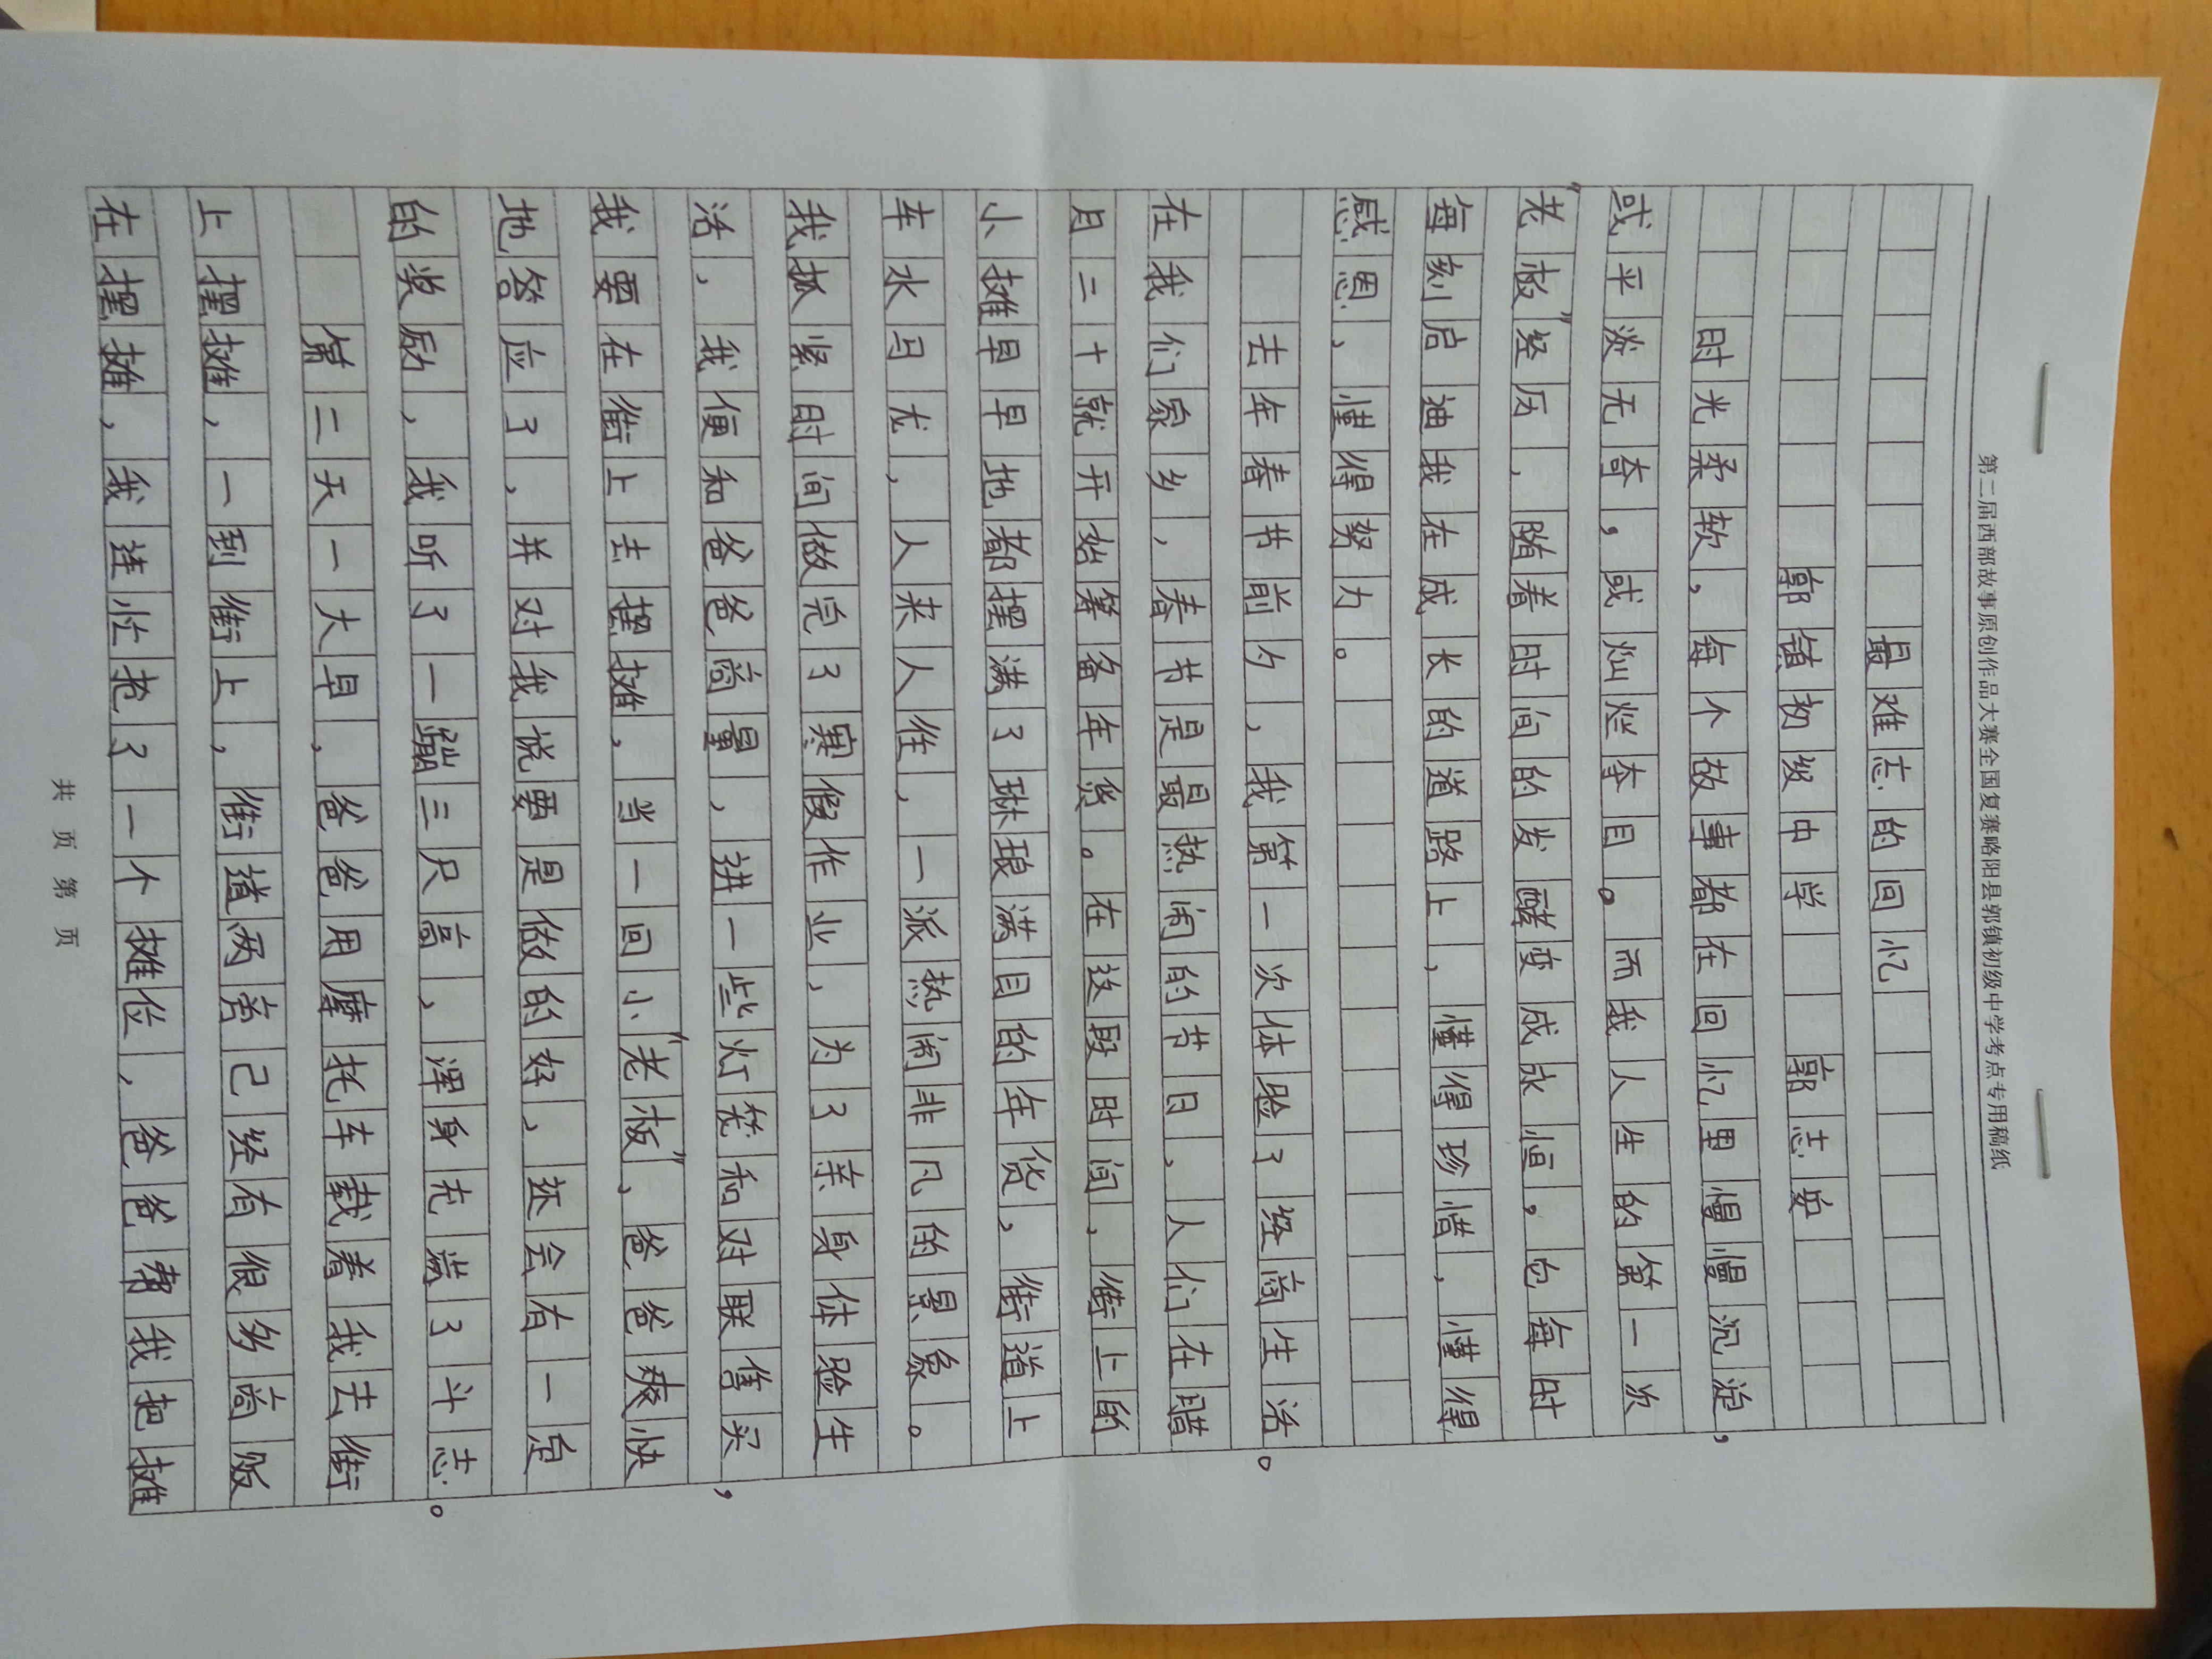 第二届西部故事原创作品大赛全国复赛略阳县郭镇初级中学考点专用稿纸
最难忘的回忆
郭镇初级中学 郭志安
时光柔软，每个故事都在回忆里慢慢沉淀，
或平淡无奇，或灿烂夺目。而我人生的第一次
"老板"经历，随着时间的发酵变成永恒，它每时
每刻启迪我在成长的道路上，懂得珍惜，懂得
感恩，懂得努力。
去年春节前夕，我第一次体验了经商生活。
在我们家乡，春节是最热闹的节日，人们在腊
月二十就开始筹备年货。在这段时间，街上的
小摊早早地都摆满了琳琅满目的年货，街道上
车水马龙，人来人往，一派热闹非凡的景象。
我抓紧时间做完了寒假作业，为了亲身体验生
活，我便和爸爸商量，进一些灯笼和对联售买，
我要在街上去摆摊，当一回小"老板"，爸爸爽快
地答应了，并对我说要是做的好，还会有一定
的奖励，我听了一蹦三尺高，浑身充满了斗志。
第二天一大早，爸爸用摩托车载着我去街
上摆摊，一到街上，街道两旁已经有很多商贩
在摆摊，我连忙抢了一个摊位，爸爸帮我把摊
共 页 第 页